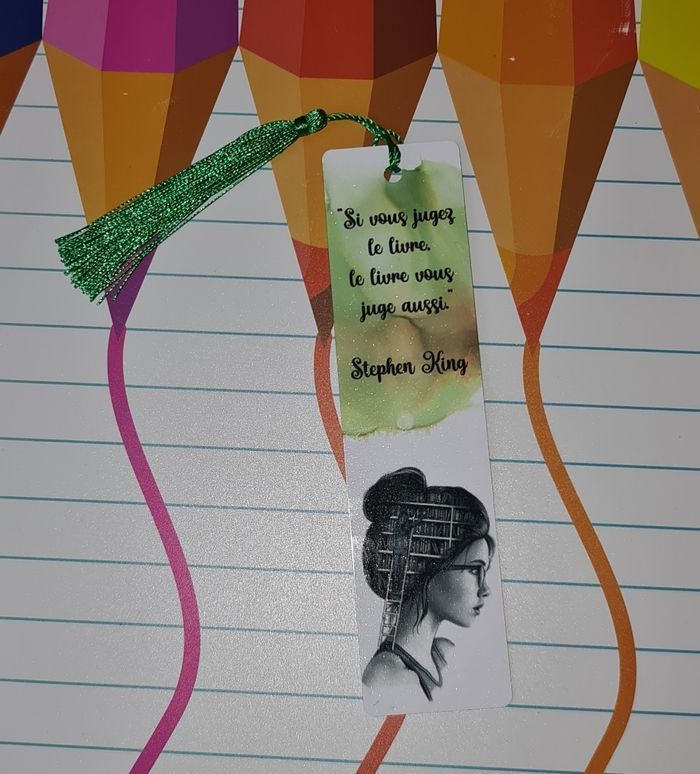 "Si vous jugez
le livre.
le livre vous
juge aussi."
Stephen King